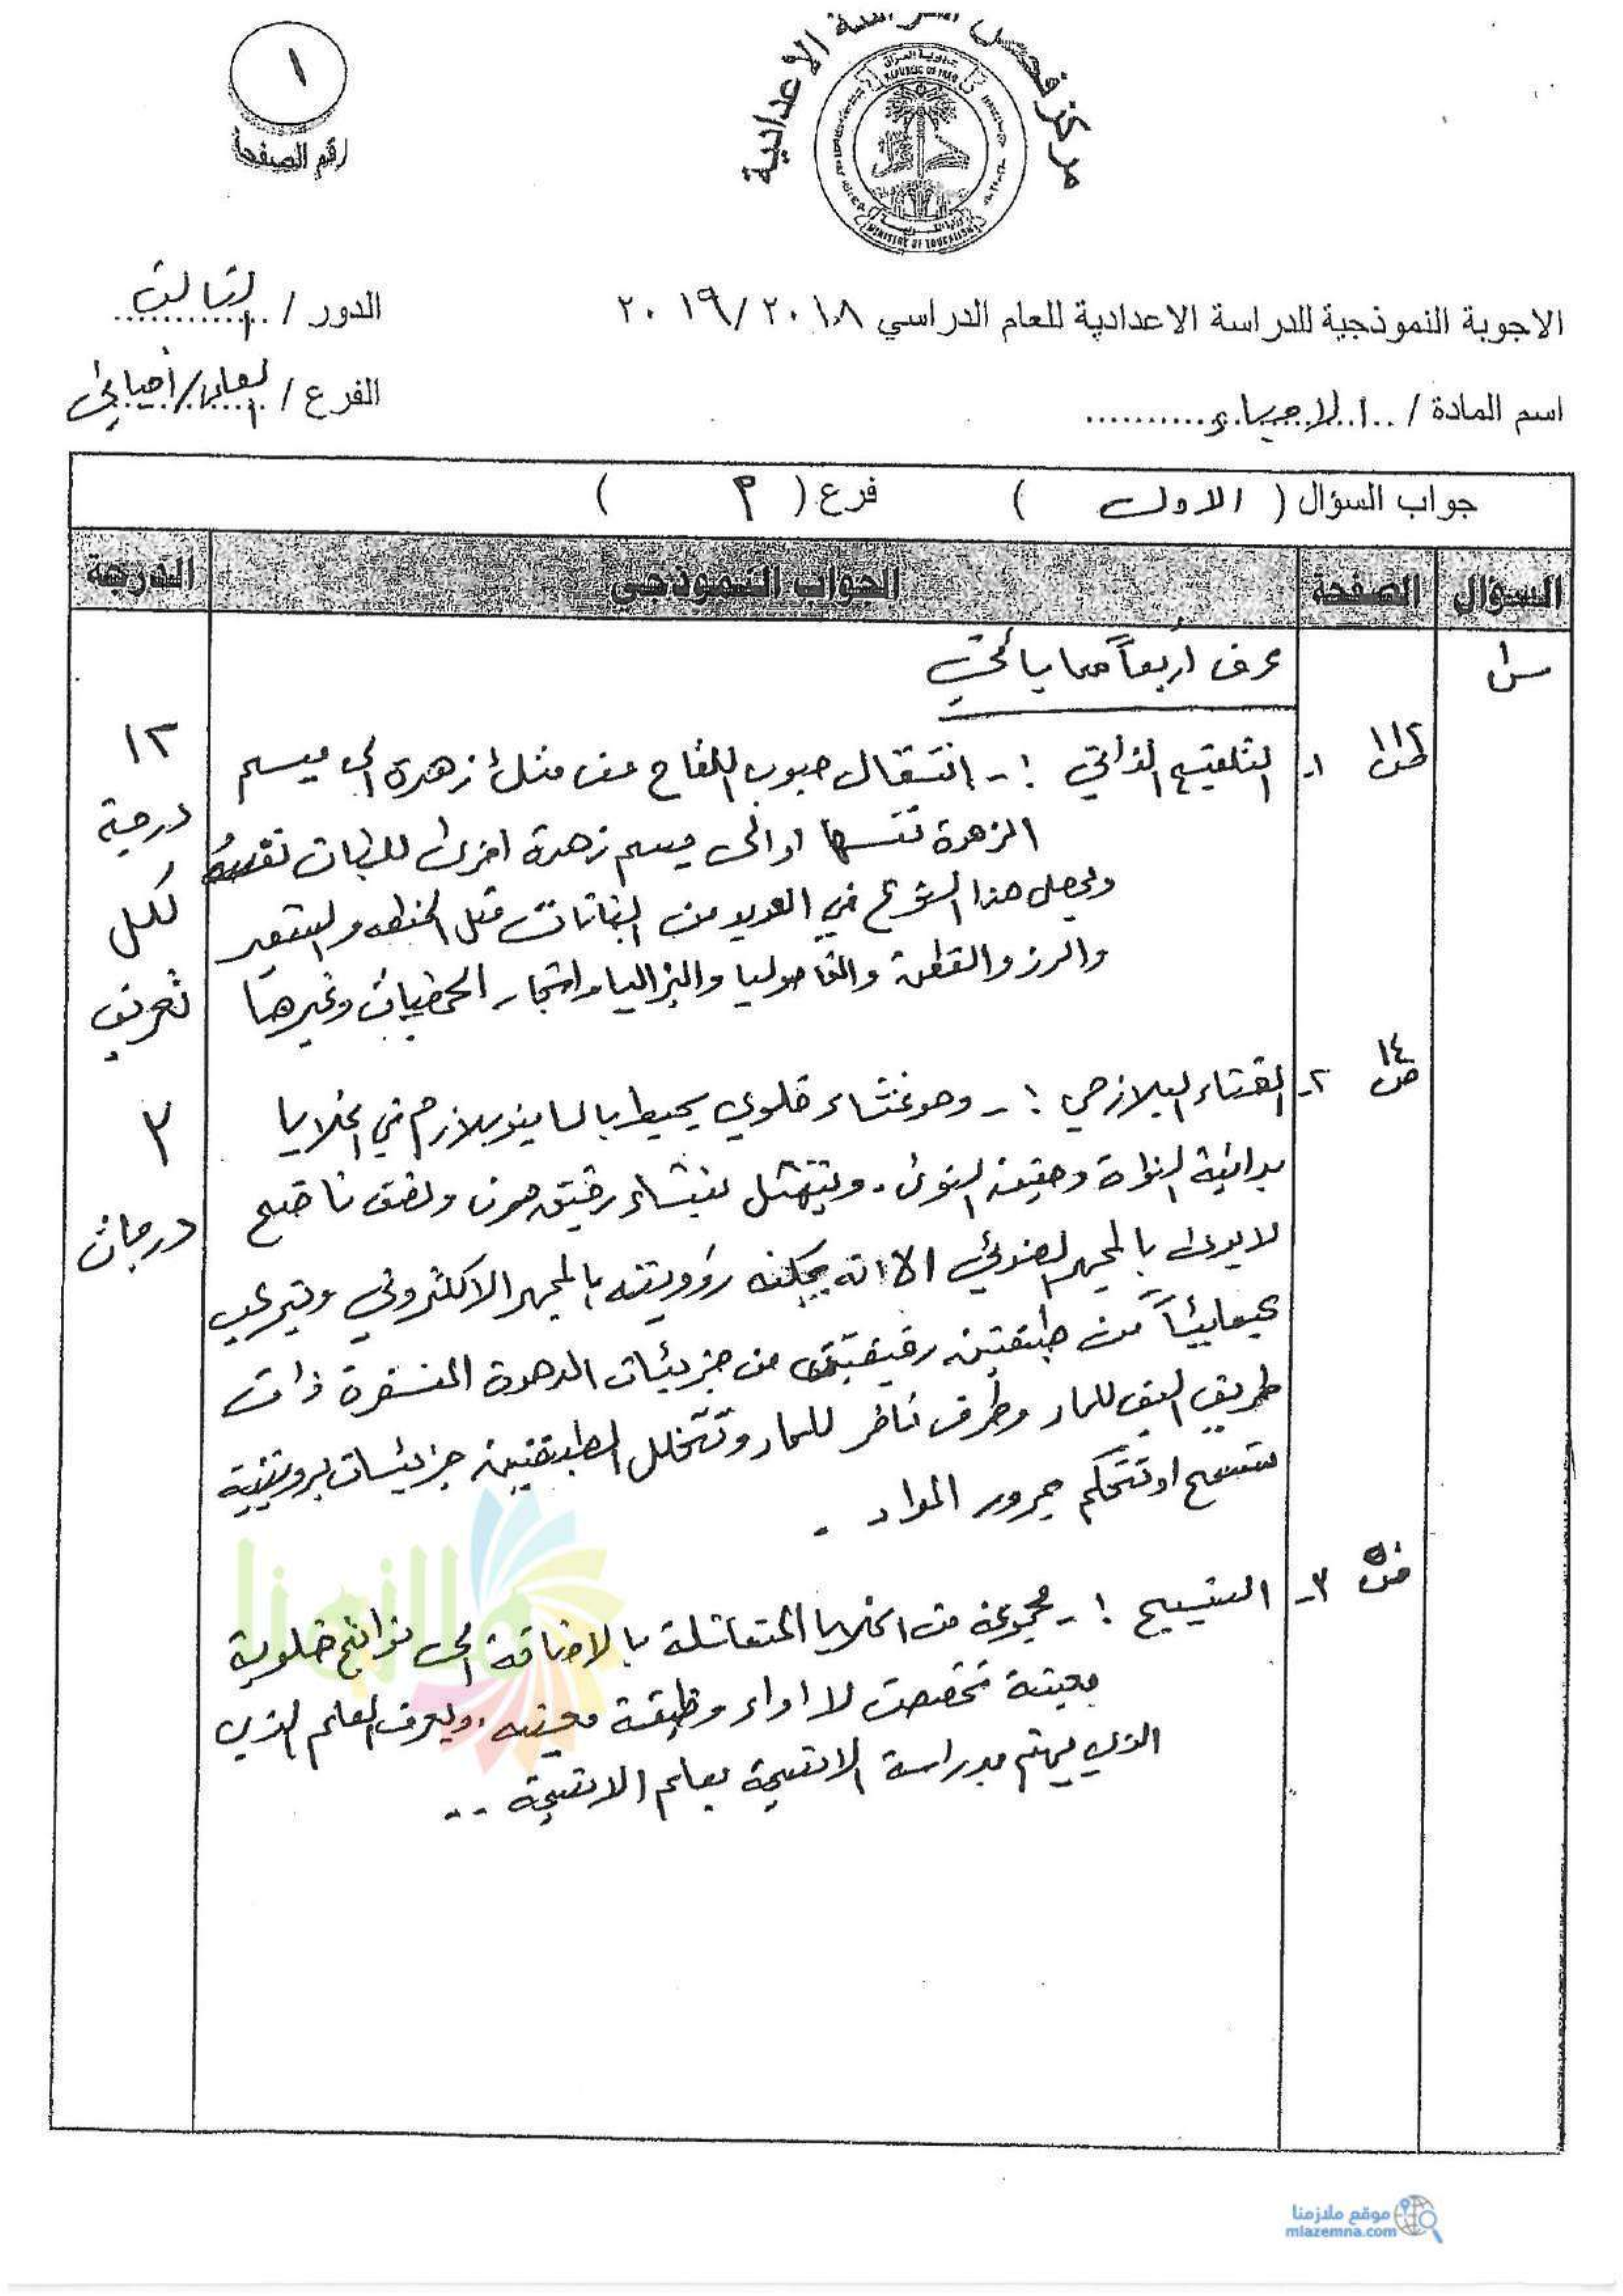 مركز فحص الدراسة الاعدادية
جمهورية العراق
REPUBLIC OF IRAQ
MINISTRY OF EDUCATION
١
رقم الصفحة
الاجوبة النموذجية للدراسة الاعدادية للعام الدراسي ٢٠١٨/٢٠١٩
الدور / الثالث
اسم المادة / الاحياء
الفرع / العلمي/أحيائي
جواب السؤال ( الاول ) فرع ( م )
السؤال الصفحة الجواب النموذجي الدرجة
س١ عرف اربعاً مما يأتي
ص١١٢ ١- التلقيح الذاتي :- انتقال حبوب اللقاح من متك زهرة الى ميسم
الزهرة نفسها او الى ميسم زهرة اخرى للنبات نفسه
ويحصل هذا النوع في العديد من النباتات مثل الحنطه والشعير
والرز والقطن والفاصوليا والبزاليا واشجار الحمضيات وغيرها
١٢
درجة
لكل
تعريف
٣
درجات
ص١٤ ٢- الغشاء البلازمي :- وهو غشاء خلوي يحيط بالسايتوبلازم في الخلايا
بدائية النواة وحقيقة النوى. ويتمثل بغشاء رقيق مرن ونصف ناضح
لا يرى بالمجهر الضوئي الا انه يمكنه رؤويته بالمجهر الالكتروني ويتركب
كيميائياً من طبقتين رقيقتين من جزيئات الدهون المفسفرة ذات
طريق اليف للماء وطرف نافر للماء وتتخلل الطبقتين جزيئات بروتينية
تسمح او تتحكم بمرور المواد .
ص٥١ ٣- النسيج :- مجموعة من الخلايا المتماثلة بالاضافة الى نواتج خلوية
معينة تخصصت لا اداء وظيفة معينه. ويعرف العلم الذي
الذي يهتم بدراسة الانسجة بعلم الانسجة ..
ملازمنا
موقع ملازمنا
mlazemna.com